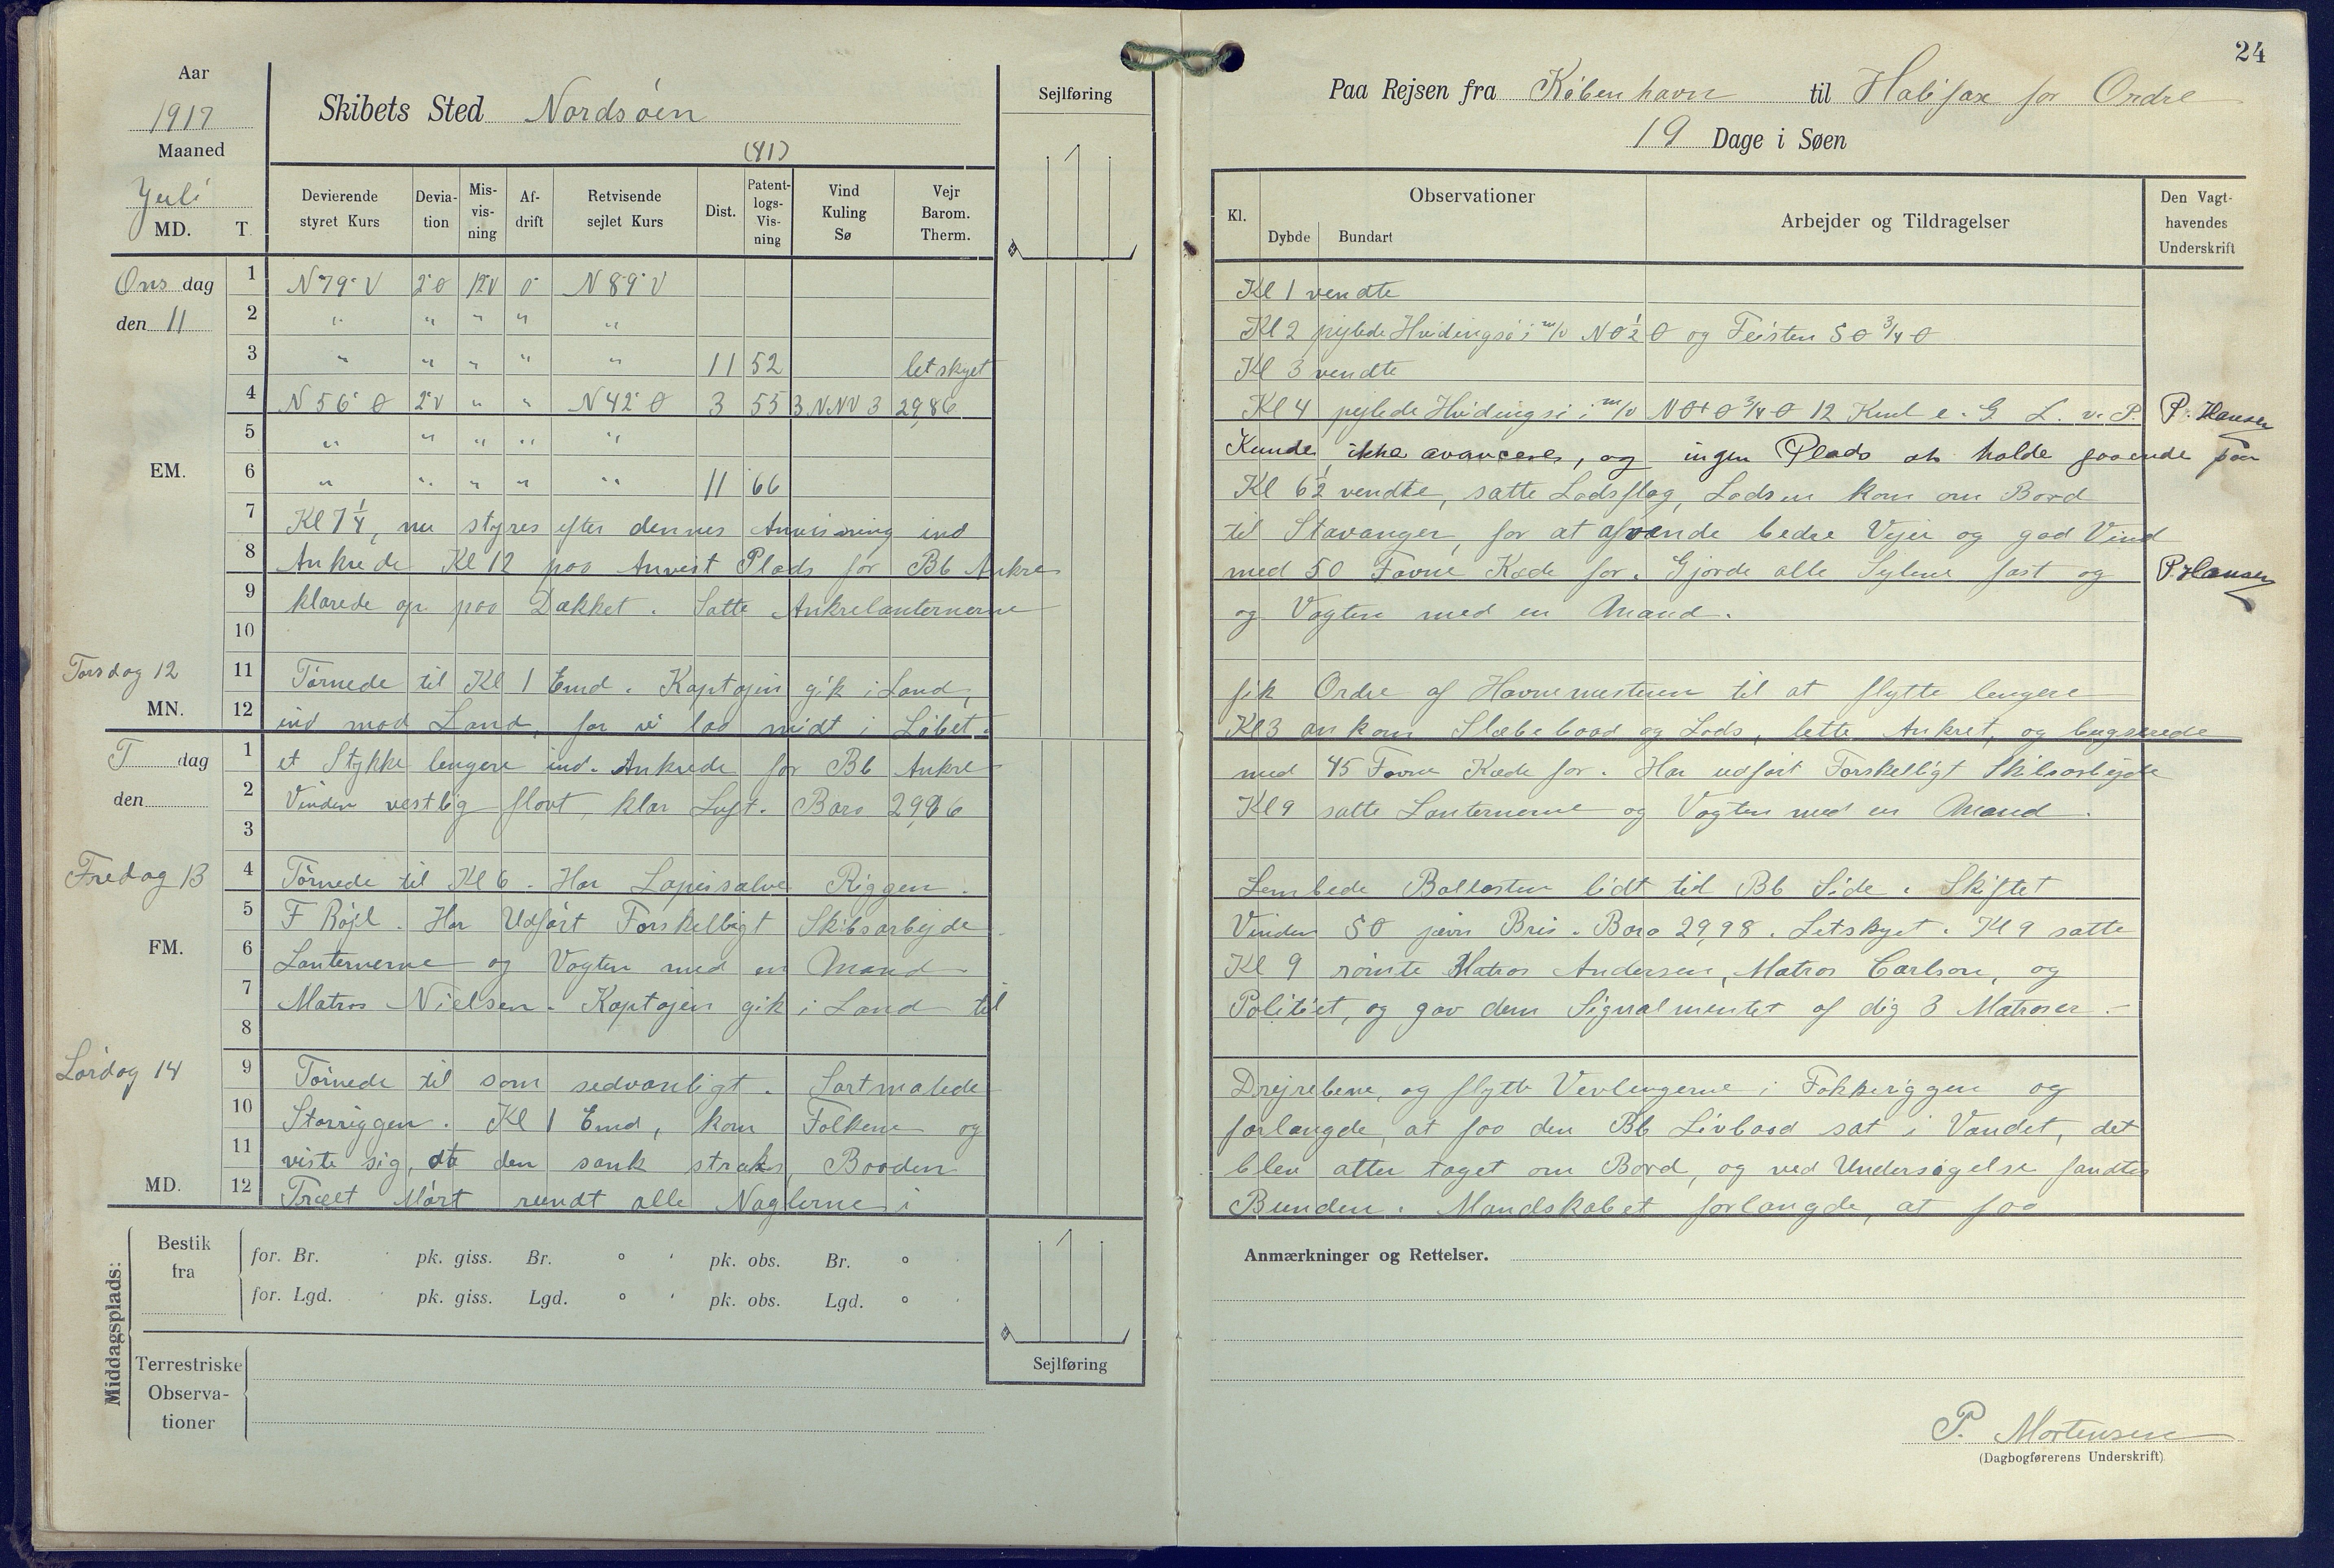 Aar
1917
Maaned
Juli
MD. T.
Skibets Sted Nordsöen
(81)
Devierende styret Kurs
Devia-tion
Mis-vis-ning
Af-drift
Retvisende sejlet Kurs
Dist.
Patent-logs-Vis-ning
Vind Kuling Sø
Vejr Barom. Therm.
Sejlføring
Ons dag
den 11
1 N 79° V 2° O 12 V 0 N 89° V
2 " " " " "
3 " " " " " 11 52 letskyet
4 N 56° O 2° V " " N 42° O 3 55 3 NNV 3 29,86
5 " " " " "
EM.
6 " " " " " 11 66
7 Kl 7 1/4, nu styres efter dennes Anvisning ind
8 Ankrede Kl 12 paa Anvist Plads for Bb Anker
9 klarede op paa Dækket. Satte Ankrelanternerne
10
Torsdag 12
11 Törnede til Kl 1 Emd. Kaptajn gik i Land,
MN.
12 ind mod Land, for vi laa midt i Löbet.
T dag
den
1 et Stykke lengere ind. Ankrede for Bb Anker
2 Vinden vestlig flovt, klar Luft. Baro 29,96
3
Fredag 13
4 Törnede til Kl 6. Har Lapisalvet Riggen.
5 F Röjl. Har Udfört Forskelligt Skibsarbejde
FM.
6 Lanternerne og Vagten med en Mand
7 Matros Nielsen. Kaptajen gik i Land til
8
Lördag 14
9 Törnede til som sedvanligt. Sortmalede
10 Storriggen. Kl 1 Emd, kom Folkene og
11 viste sig, at den sank straks, Baaden
MD.
12 Træet Mört rundt alle Naglerne i
Middagsplads:
Bestik fra
for. Br. pk. giss. Br. ° ' pk. obs. Br. ° '
for. Lgd. pk. giss. Lgd. ° ' pk. obs. Lgd. ° '
Terrestriske Observa-tioner
Sejlføring
24
Paa Rejsen fra Köbenhavn til Halifax for Ordre
19 Dage i Søen
Kl.
Observationer
Dybde Bundart
Arbejder og Tildragelser
Den Vagt-havendes Underskrift
Kl 1 vendte
Kl 2 pejlede Hvidingsö i m/v NO 1/2 O og Feisten SO 3/4 O
Kl 3 vendte
Kl 4 pejlede Hvidingsö i m/v NOtO 3/4 O 12 Kml e. G L. v. P. P. Hansen
Kunde ikke avancere, og ingen Plads at holde gaaende paa
Kl 6 1/2 vendte, satte Lodsflag, Lodsen kom om Bord
til Stavanger, for at afvende bedre Vejer og god Vind
med 50 Favne Kæde for. Gjorde alle Sejlene fast og P. Hansen
og Vagten med en Mand.
fik Ordre af Havnemesteren til at flytte lengere
Kl 3 ankom Slæbebaad og Lods, lette Ankret, og bugserede
med 45 Favne Kæde for. Har udfört Forskelligt Skibsarbejde
Kl 9 satte Lanternerne og Vagten med en Mand.
Lembede Ballasten lidt til Bb Side. Skiftet
Vinden SO jævn Bris. Baro 29,98. Letskyet. Kl 9 satte
Kl 9 römte Matros Andersen, Matros Carlson, og
Politiet, og gav dem Signalmentet af dig 3 Matroser.
Drejrebene, og flytte Vevlingerne i Fokkeriggen og
forlangde, at faa den Bb Livbaad sat i Vandet, det
blev atter taget om Bord, og ved Undersögelse fandtes
Bunden. Mandskabet forlangde, at faa
Anmærkninger og Rettelser.
P. Mortensen
(Dagbogførerens Underskrift)